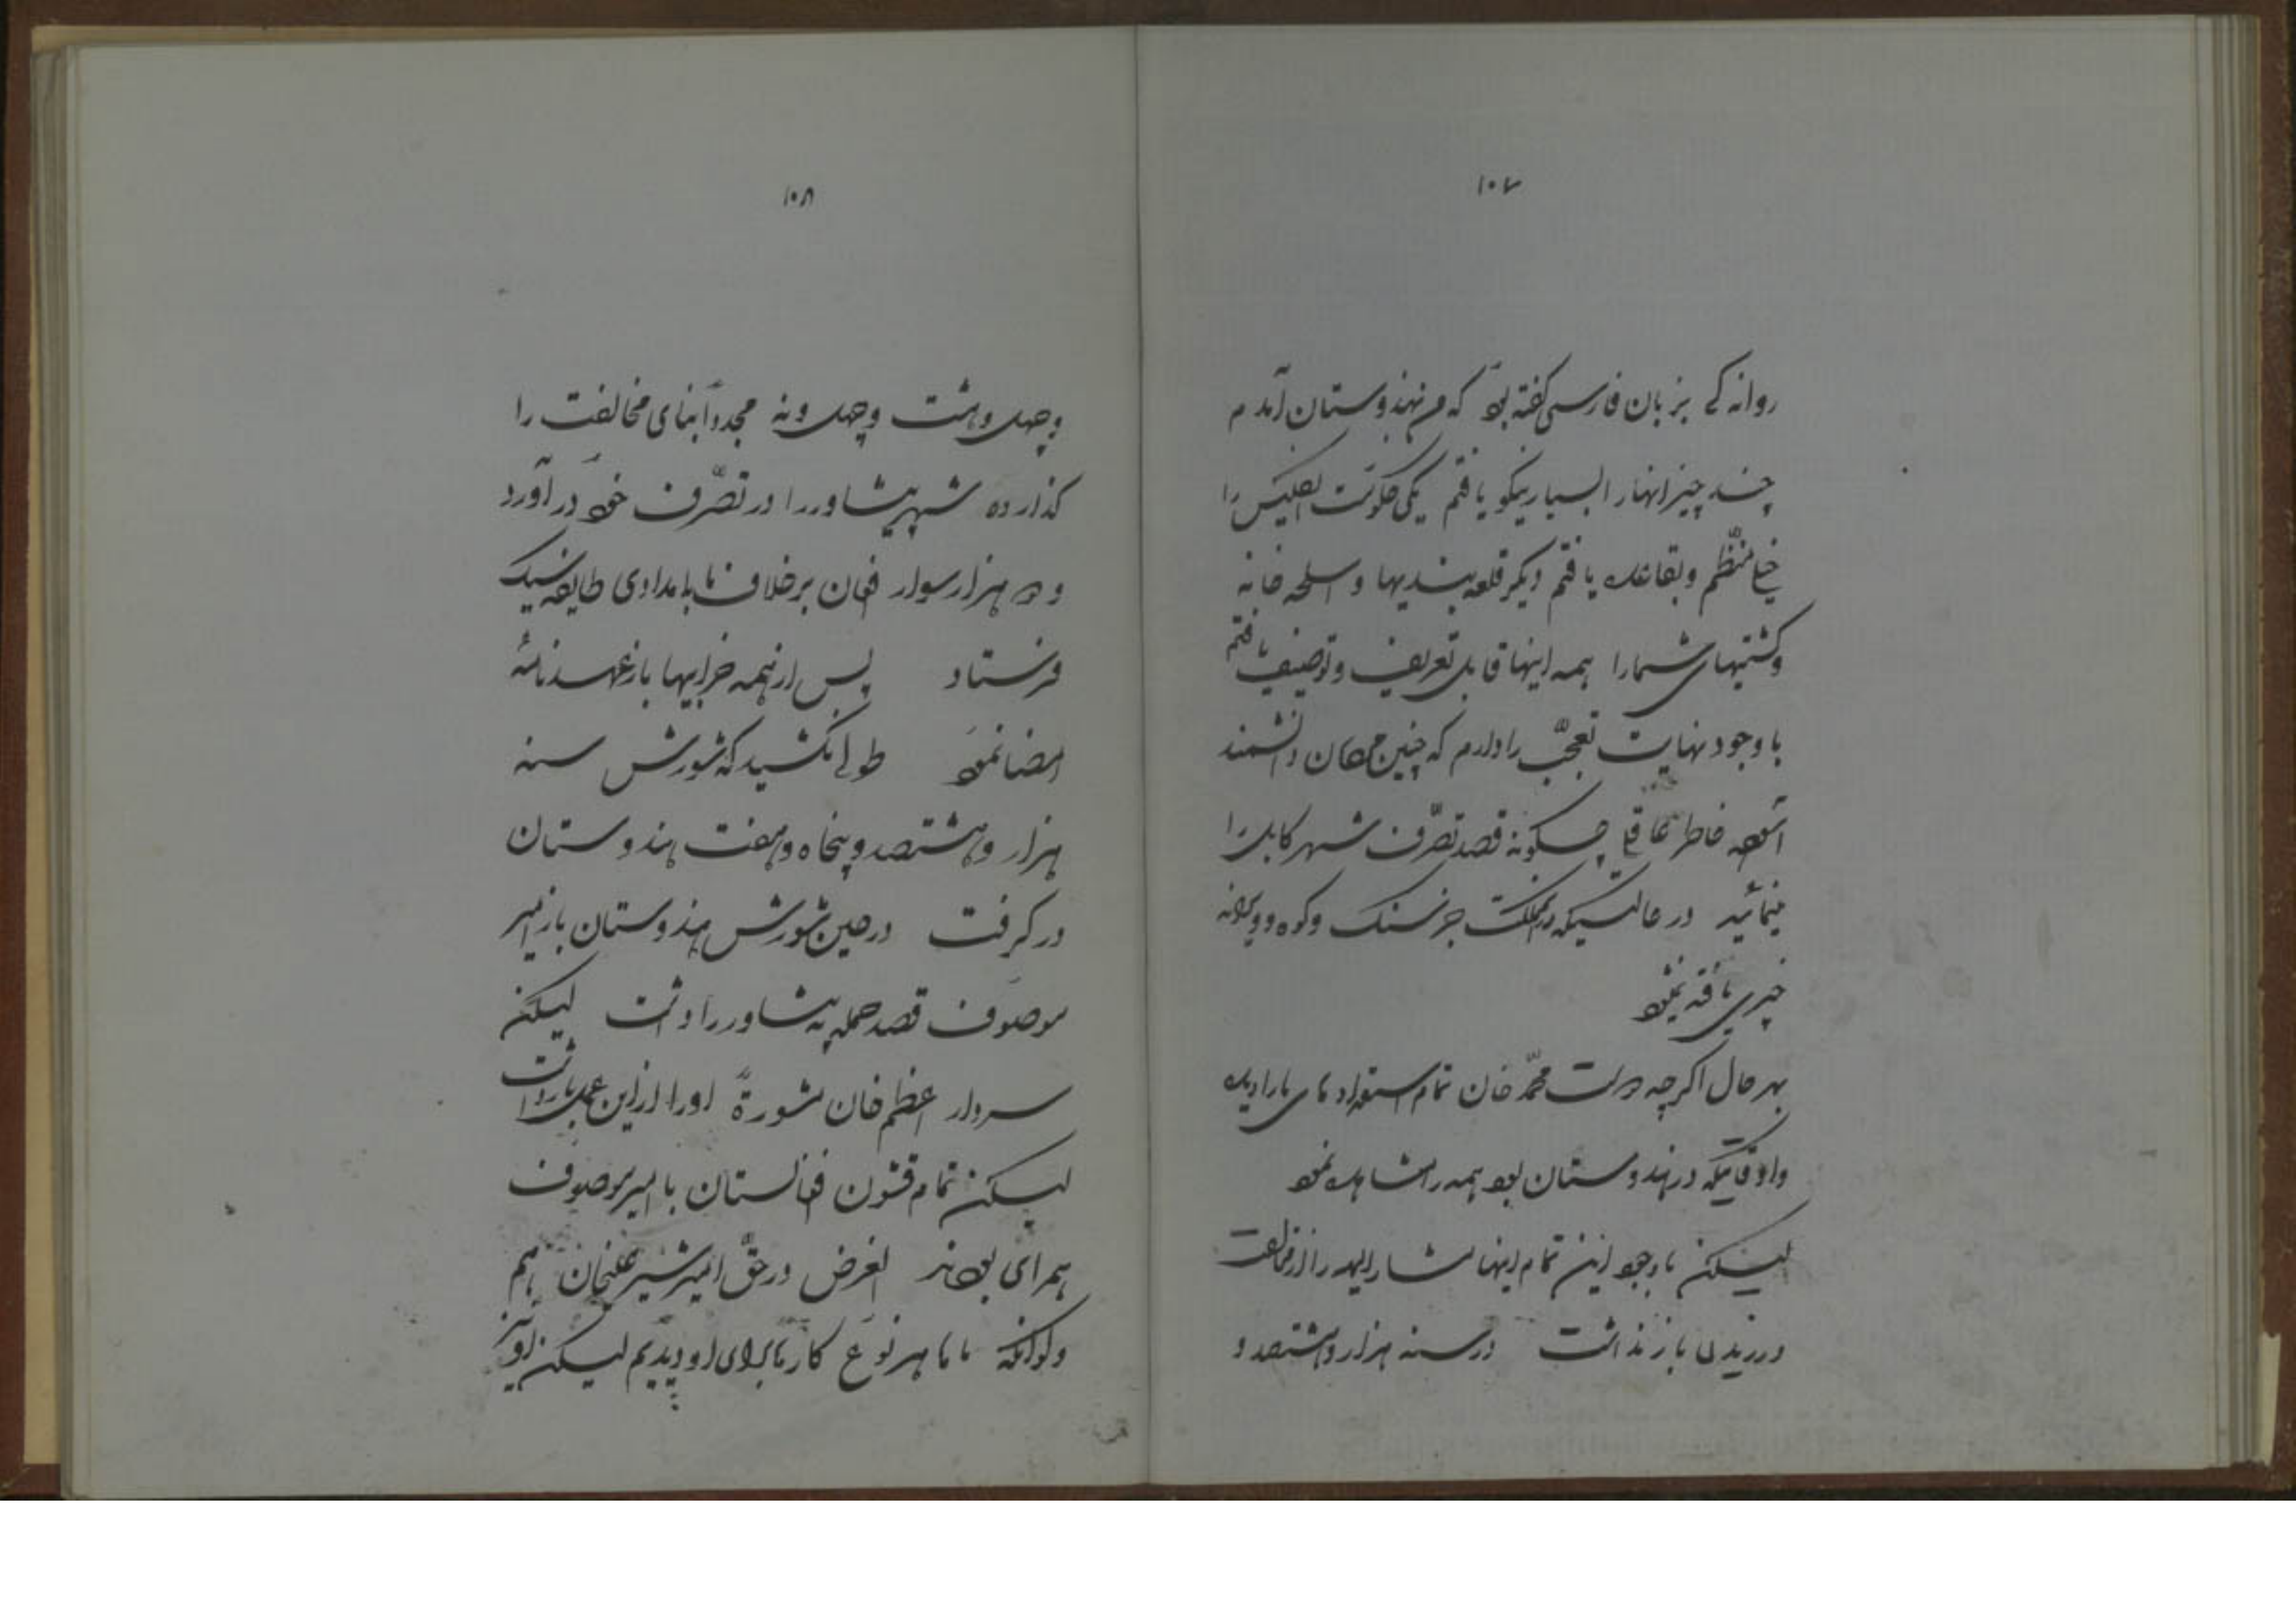 ۱۰۷
روانه کے بزبان فارسی گفته بود که من بهندوستان آمدم
چند چیز انهار ابسیار نیکو یافتم یکی حکومت انگلیس را
خیلی منظّم و بقاعده یافتم دیگر قلعه بندیها و اسلحه خانه
و کشتیهای شما را همه اینها قابل تعریف و توصیف یافتم
با وجود نهایت تعجّب را دارم که چنین مردمان دانشمند
آسوده خاطر عاقل چگونه قصد تصّرف شهر کابل را
مینمائید در حالتیکه در مملکت جز سنگ و کوه و ویرانه
چیزی یافته نمیشود
بهر حال اگرچه دوست محمّد خان تمام استعداد های ما را دیده
و اوقاتیکه در هندوستان بود همه را مشاهده نمود
لیکن با وجود این تمام اینها مشار الیه را از مخالفت
ورزیدن باز نداشت در سنه هزار و هشتصد و
۱۰۸
و چهل و هشت و چهل و نه مجدداً بنای مخالفت را
گذارده شهر پیشاور را در تصّرف خود در آورد
و دو هزار سوار افغان بر خلاف ما بامدادی طایفه سیک
فرستاد پس از همه خرابیها باز عهدنامهٔ
امضا نمود طولے نکشید که شورش سنه
هزار و هشتصد و پنجاه و هفت هندوستان
در گرفت در حین شورش هندوستان باز امیر
موصوف قصد حمله به پیشاور را داشت لیکن
سردار اعظم خان مشورةً او را از این عمل باز داشت
لیکن تمام قشون افغانستان با امیر موصوف
همرای بودند الغرض در حقّ امیر شیر علیخان هم
ولو آنکه ما ها هر نوع کار ها برای او دیدیم لیکن او نیز